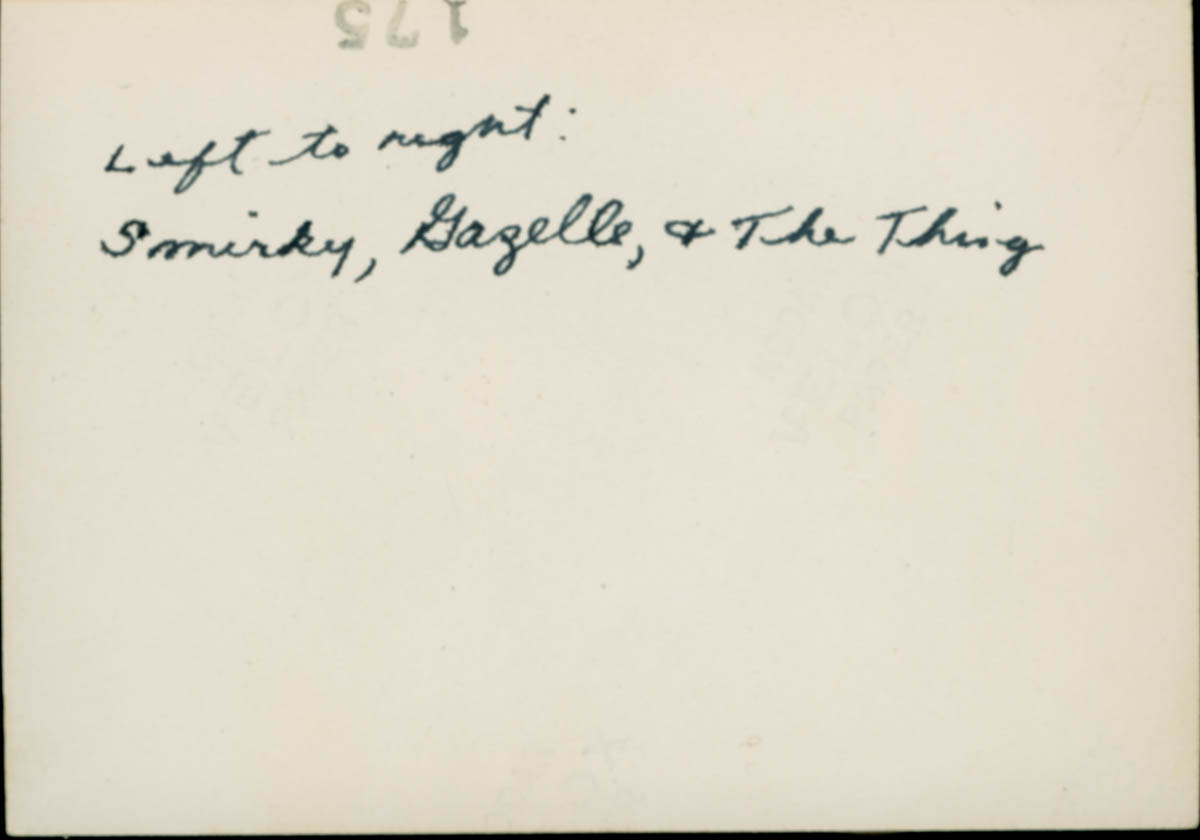 175
Left to right:
Smirky, Gazelle, & The Thing